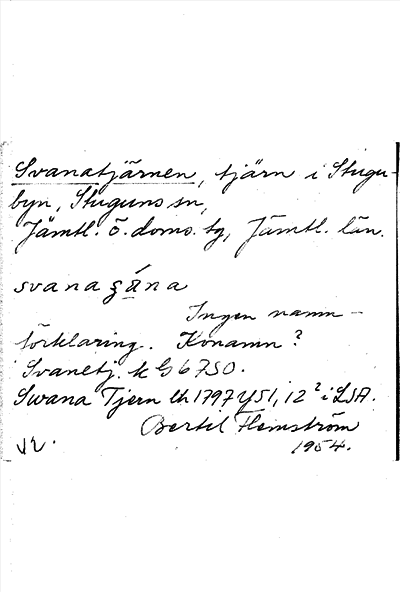 Svanatjärnen, tjärn i Stugu-
byn, Stuguns sn,
Jämtl. ö. doms. tg, Jämtl. län.
svana
Ingen namn-
förklaring. Konamn?
Svanetj. k G 6750.
Swana Tjern Lh 1797 Y51, 12² i LSA.
Bertil Flemström
1954.